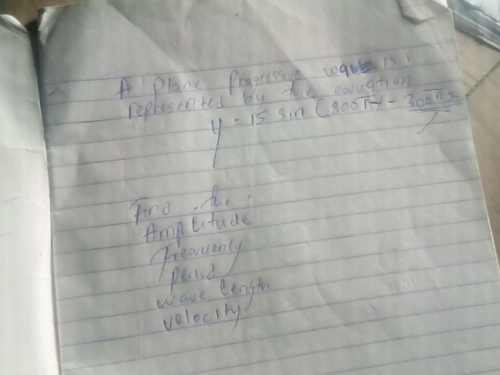 A plane progressive wave is
represented by the equation
y = 15 sin (800π - 300πx
Find the
Amplitude
frequency
period
wave length
velocity